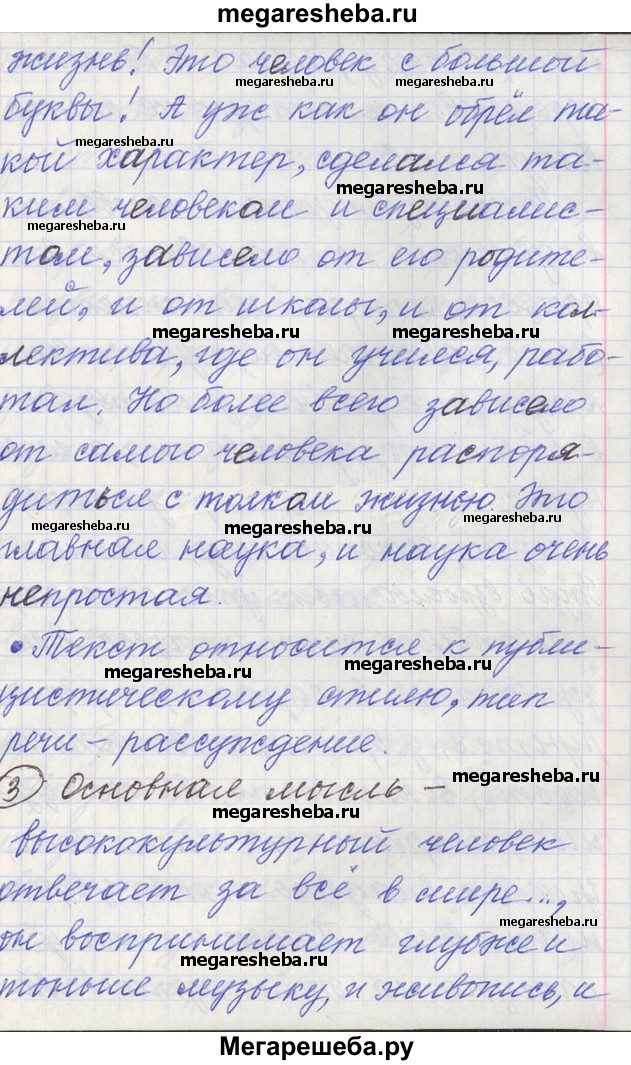 megaresheba.ru
жизнь! Это человек с большой
megaresheba.ru megaresheba.ru
буквы! А уж как он обрёл та-
megaresheba.ru
кой характер, сделался та-
megaresheba.ru
ким человеком и специалис-
megaresheba.ru
том, зависело от его родите-
лей, и от школы, и от кол-
megaresheba.ru megaresheba.ru
лектива, где он учился, рабо-
тал. Но более всего зависело
от самого человека распоря-
диться с толком жизнью. Это
megaresheba.ru megaresheba.ru megaresheba.ru
главная наука, и наука очень
непростая.
• Текст относится к публи-
megaresheba.ru megaresheba.ru
цистическому стилю, тип
речи – рассуждение.
3 Основная мысль –
megaresheba.ru
megaresheba.ru
высококультурный человек
отвечает за всё в мире...,
megaresheba.ru
он воспринимает глубже и
megaresheba.ru
тоньше музыку, и живопись, и
Мегарешеба.ру